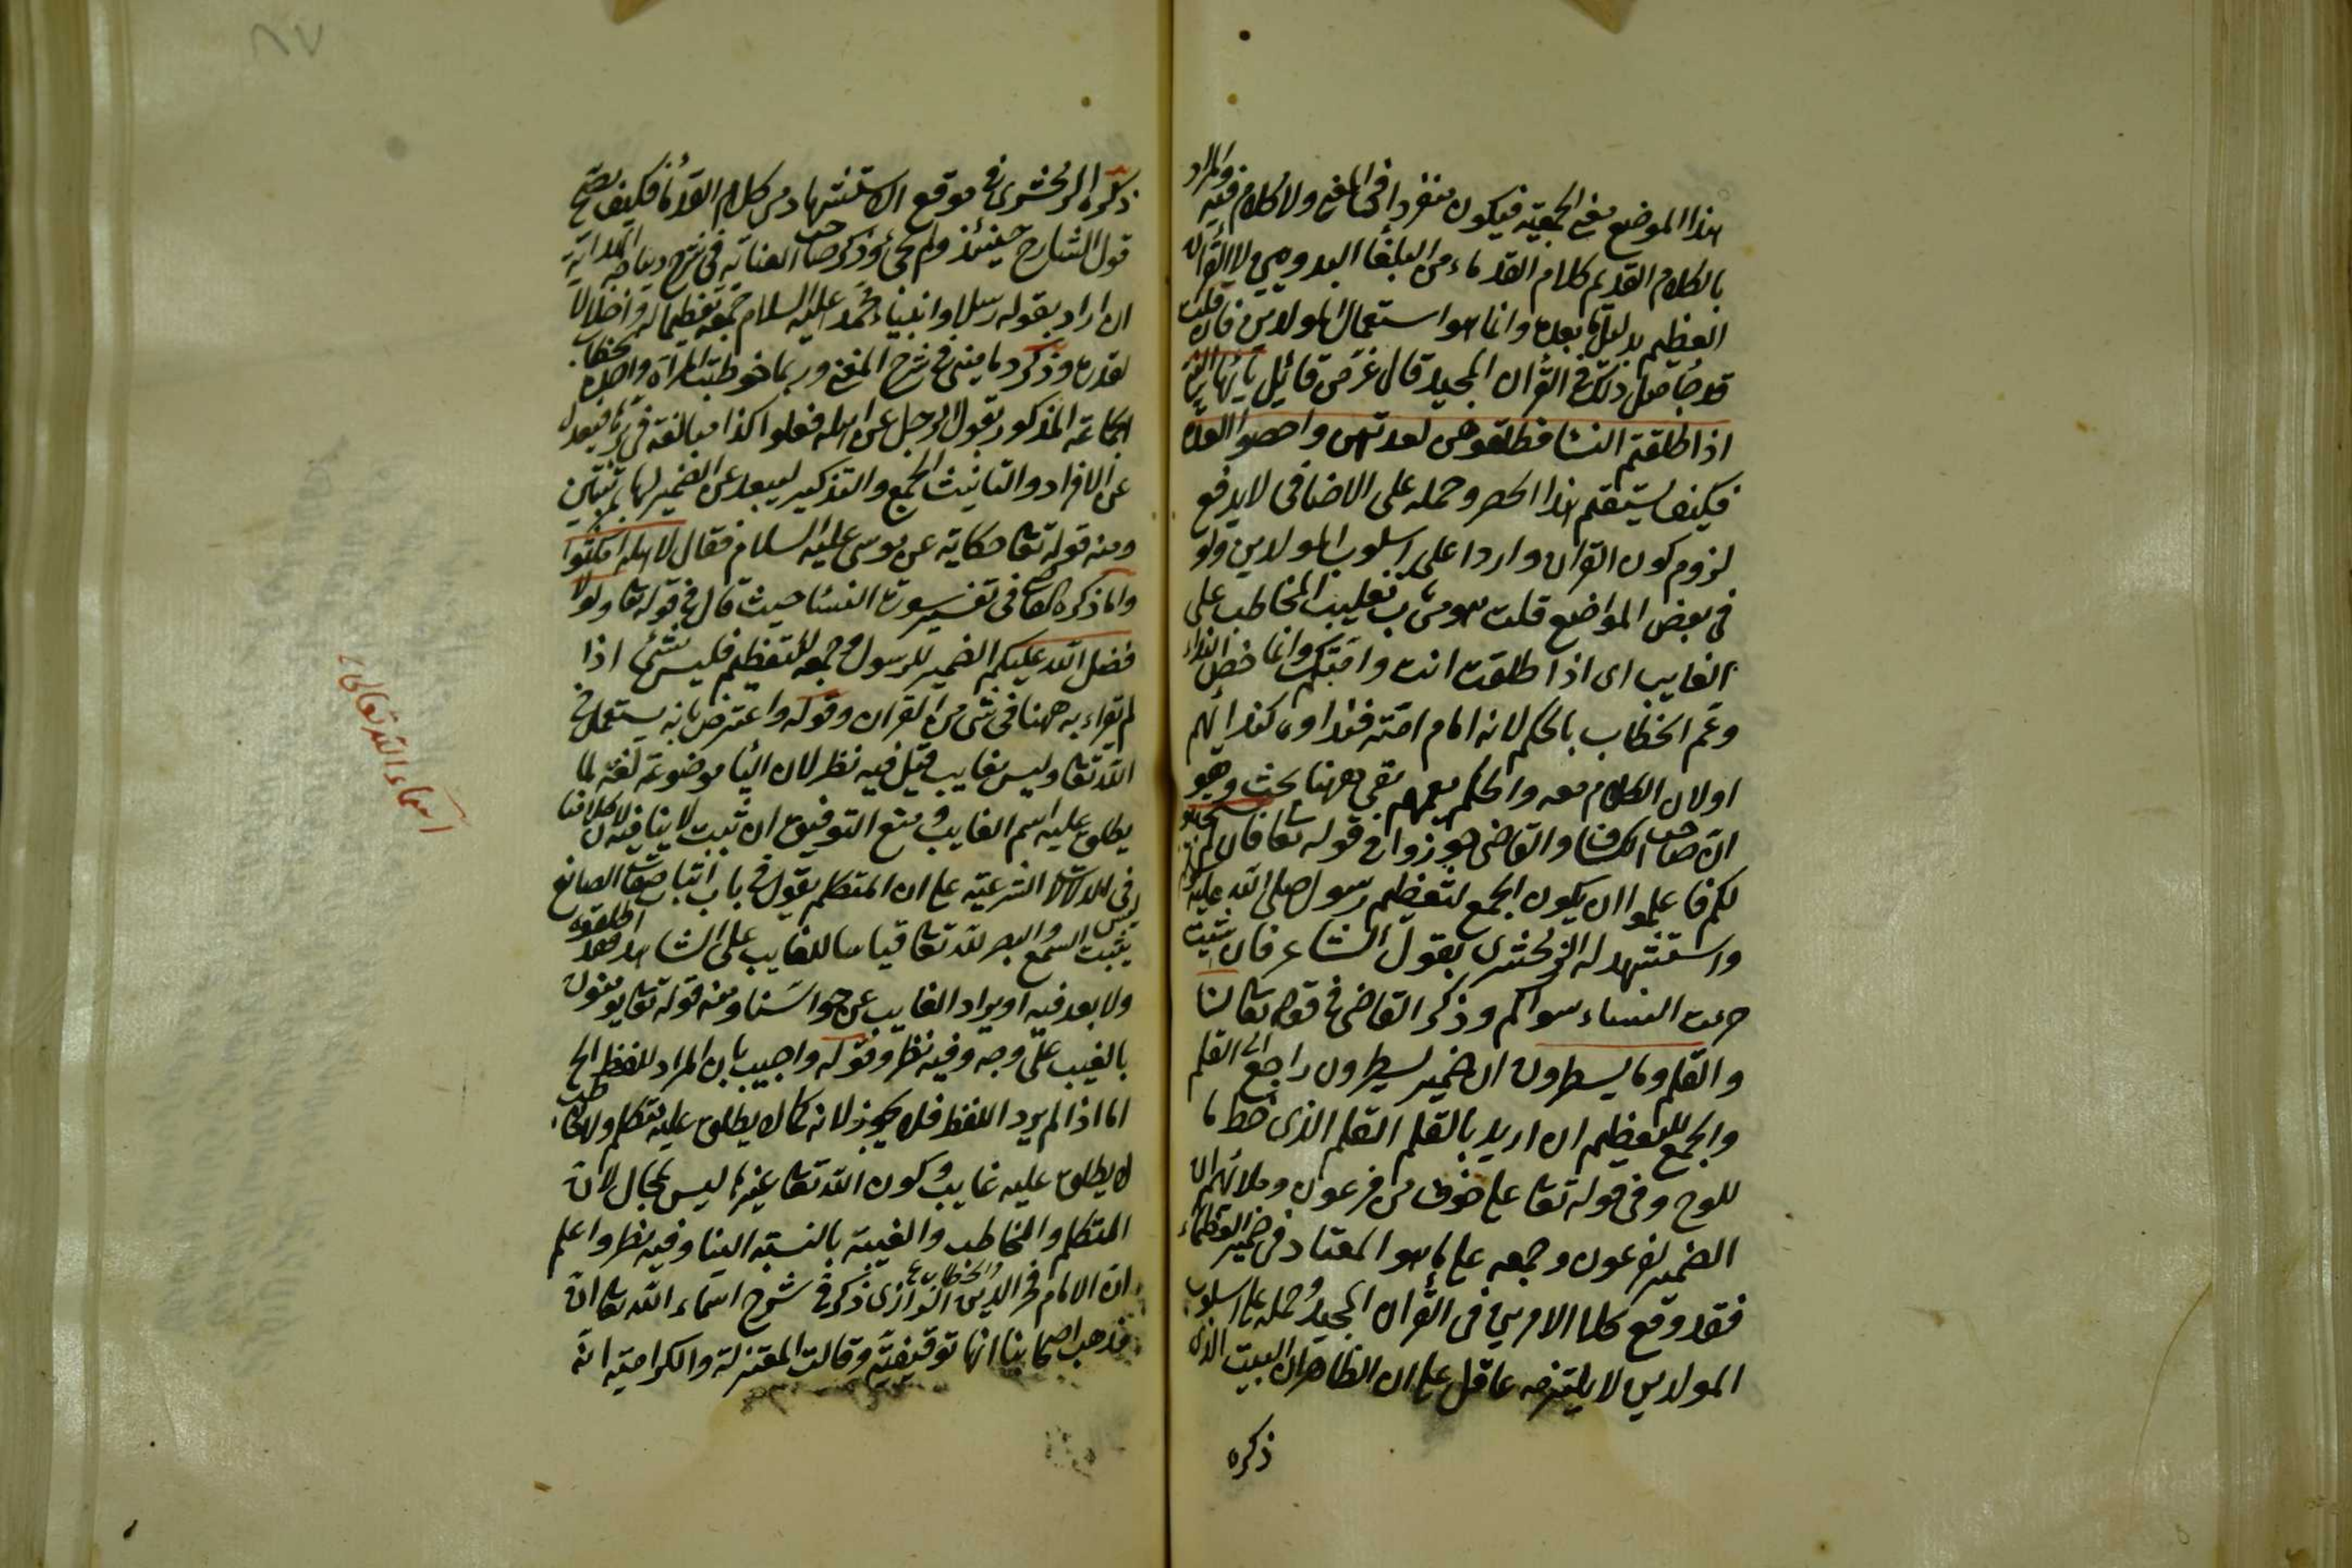 هذا الموضع مع الجمعية فيكون منفردا في المعنى ولا كلام فيه والمراد
بالكلام القديم كلام القدماء من البلغاء البدويين لا القرآن
العظيم بدليل ما بعده وانما هو استعمال المولدين فان قلت
قد جاء مثل ذلك في القرآن المجيد قال عز من قائل يا ايها النبي
اذا طلقتم النساء فطلقوهن لعدتهن واحصوا العدة
فكيف يستقيم هذا الحصر وحمله على الاضافي لا يدفع
لزوم كون القرآن واردا على اسلوب المولدين ولو
في بعض المواضع قلت هو من باب تغليب المخاطب على
الغايب اى اذا طلقت انت وامتك وانما خص النداء
وعم الخطاب بالحكم لانه امام امته فنداوه كندائهم
اولان الكلام معه والحكم يعمهم بقى ههنا بحث وهو
ان صاحب الكشاف والقاضى جوزوا في قوله تعا فان لم يستجيبوا
لكم فاعلموا ان يكون الجمع لتعظيم رسول صلى الله عليه وسلم
واستشهد له الزمخشرى بقول الشاعر فان شئت
حرمت النساء سواكم وذكر القاضى في قوله تعا
والقلم وما يسطرون ان ضمير يسطرون راجع الى القلم
والجمع للتعظيم ان اريد بالقلم القلم الذى خط ما
للوح وفى قوله تعا على خوف من فرعون وملائهم ان
الضمير لفرعون وجمعه على ما هو المعتاد في ضمير العظماء
فقد وقع كلا الامرين في القرآن المجيد وحمله على اسلوب
المولدين لا يلتزمه عاقل على ان الظاهر ان البيت الذى
ذكره
ذكره الزمخشرى في موقع الاستشهاد من كلام القدماء فكيف يصح
قول الشارح حينئذ ولم يجئ وذكر صاحب العناية في شرح ديباجة الهداية
ان اراد بقوله رسلا وانبياء محمد عليه السلام جمعه تعظيما له واجلالا
لقدره وذكر دمامينى في شرح المغنى وربما خوطبت المرأة واحدة بخطاب
الجماعة المذكور بقول الرجل عن اهله فعلوا كذا مبالغة في سترها فيعدل
عن الافراد والتانيث الجمع والتذكير ليبعد عن الضمير لها بمرتبتين
ومنه قوله تعا حكاية عن موسى عليه السلام فقال لاهله امكثوا
واما ذكره في تفسير سورة النساء حيث قال في قوله تعا ولولا
فضل الله عليكم الضمير للرسول وجمعه للتعظيم فليس بشئ اذا
لم يقراء به ههنا في شئ من القرآن وقوله واعترض بانه يستعمل في
الله تعا وليس بغايب قيل فيه نظر لان الياء موضوعة لغة لما
يطلق عليه اسم الغايب ومنع التوفيق ان ثبت لا ينافيه لان كلامنا
ليس في الشرعية على ان المتكلم يقول في باب اثبات صفات الصانع
يثبت السمع والبصر لله تعا قياسا للغايب على الشاهد فقد اطلقوه
ولا بعد فيه او يراد الغايب عن حواسنا ومنه قوله تعا يومنون
بالغيب على وجه وفيه نظر وقوله واجيب بان المراد اللفظ الخ
اما اذا لم يرد اللفظ فلا يجوز لانه كما لا يطلق عليه متكلم ولا مخاطب
لا يطلق عليه غايب وكون الله تعا غيرها ليس بمحال لان
المتكلم والمخاطب والغيبة بالنسبة الينا وفيه نظر واعلم
والخطاب
ان الامام فخر الدين الرازى ذكر في شرح اسماء الله تعا ان
مذهب اصحابنا انها توقيفية وقالت المعتزلة والكرامية ان
اسماء الله تعالى